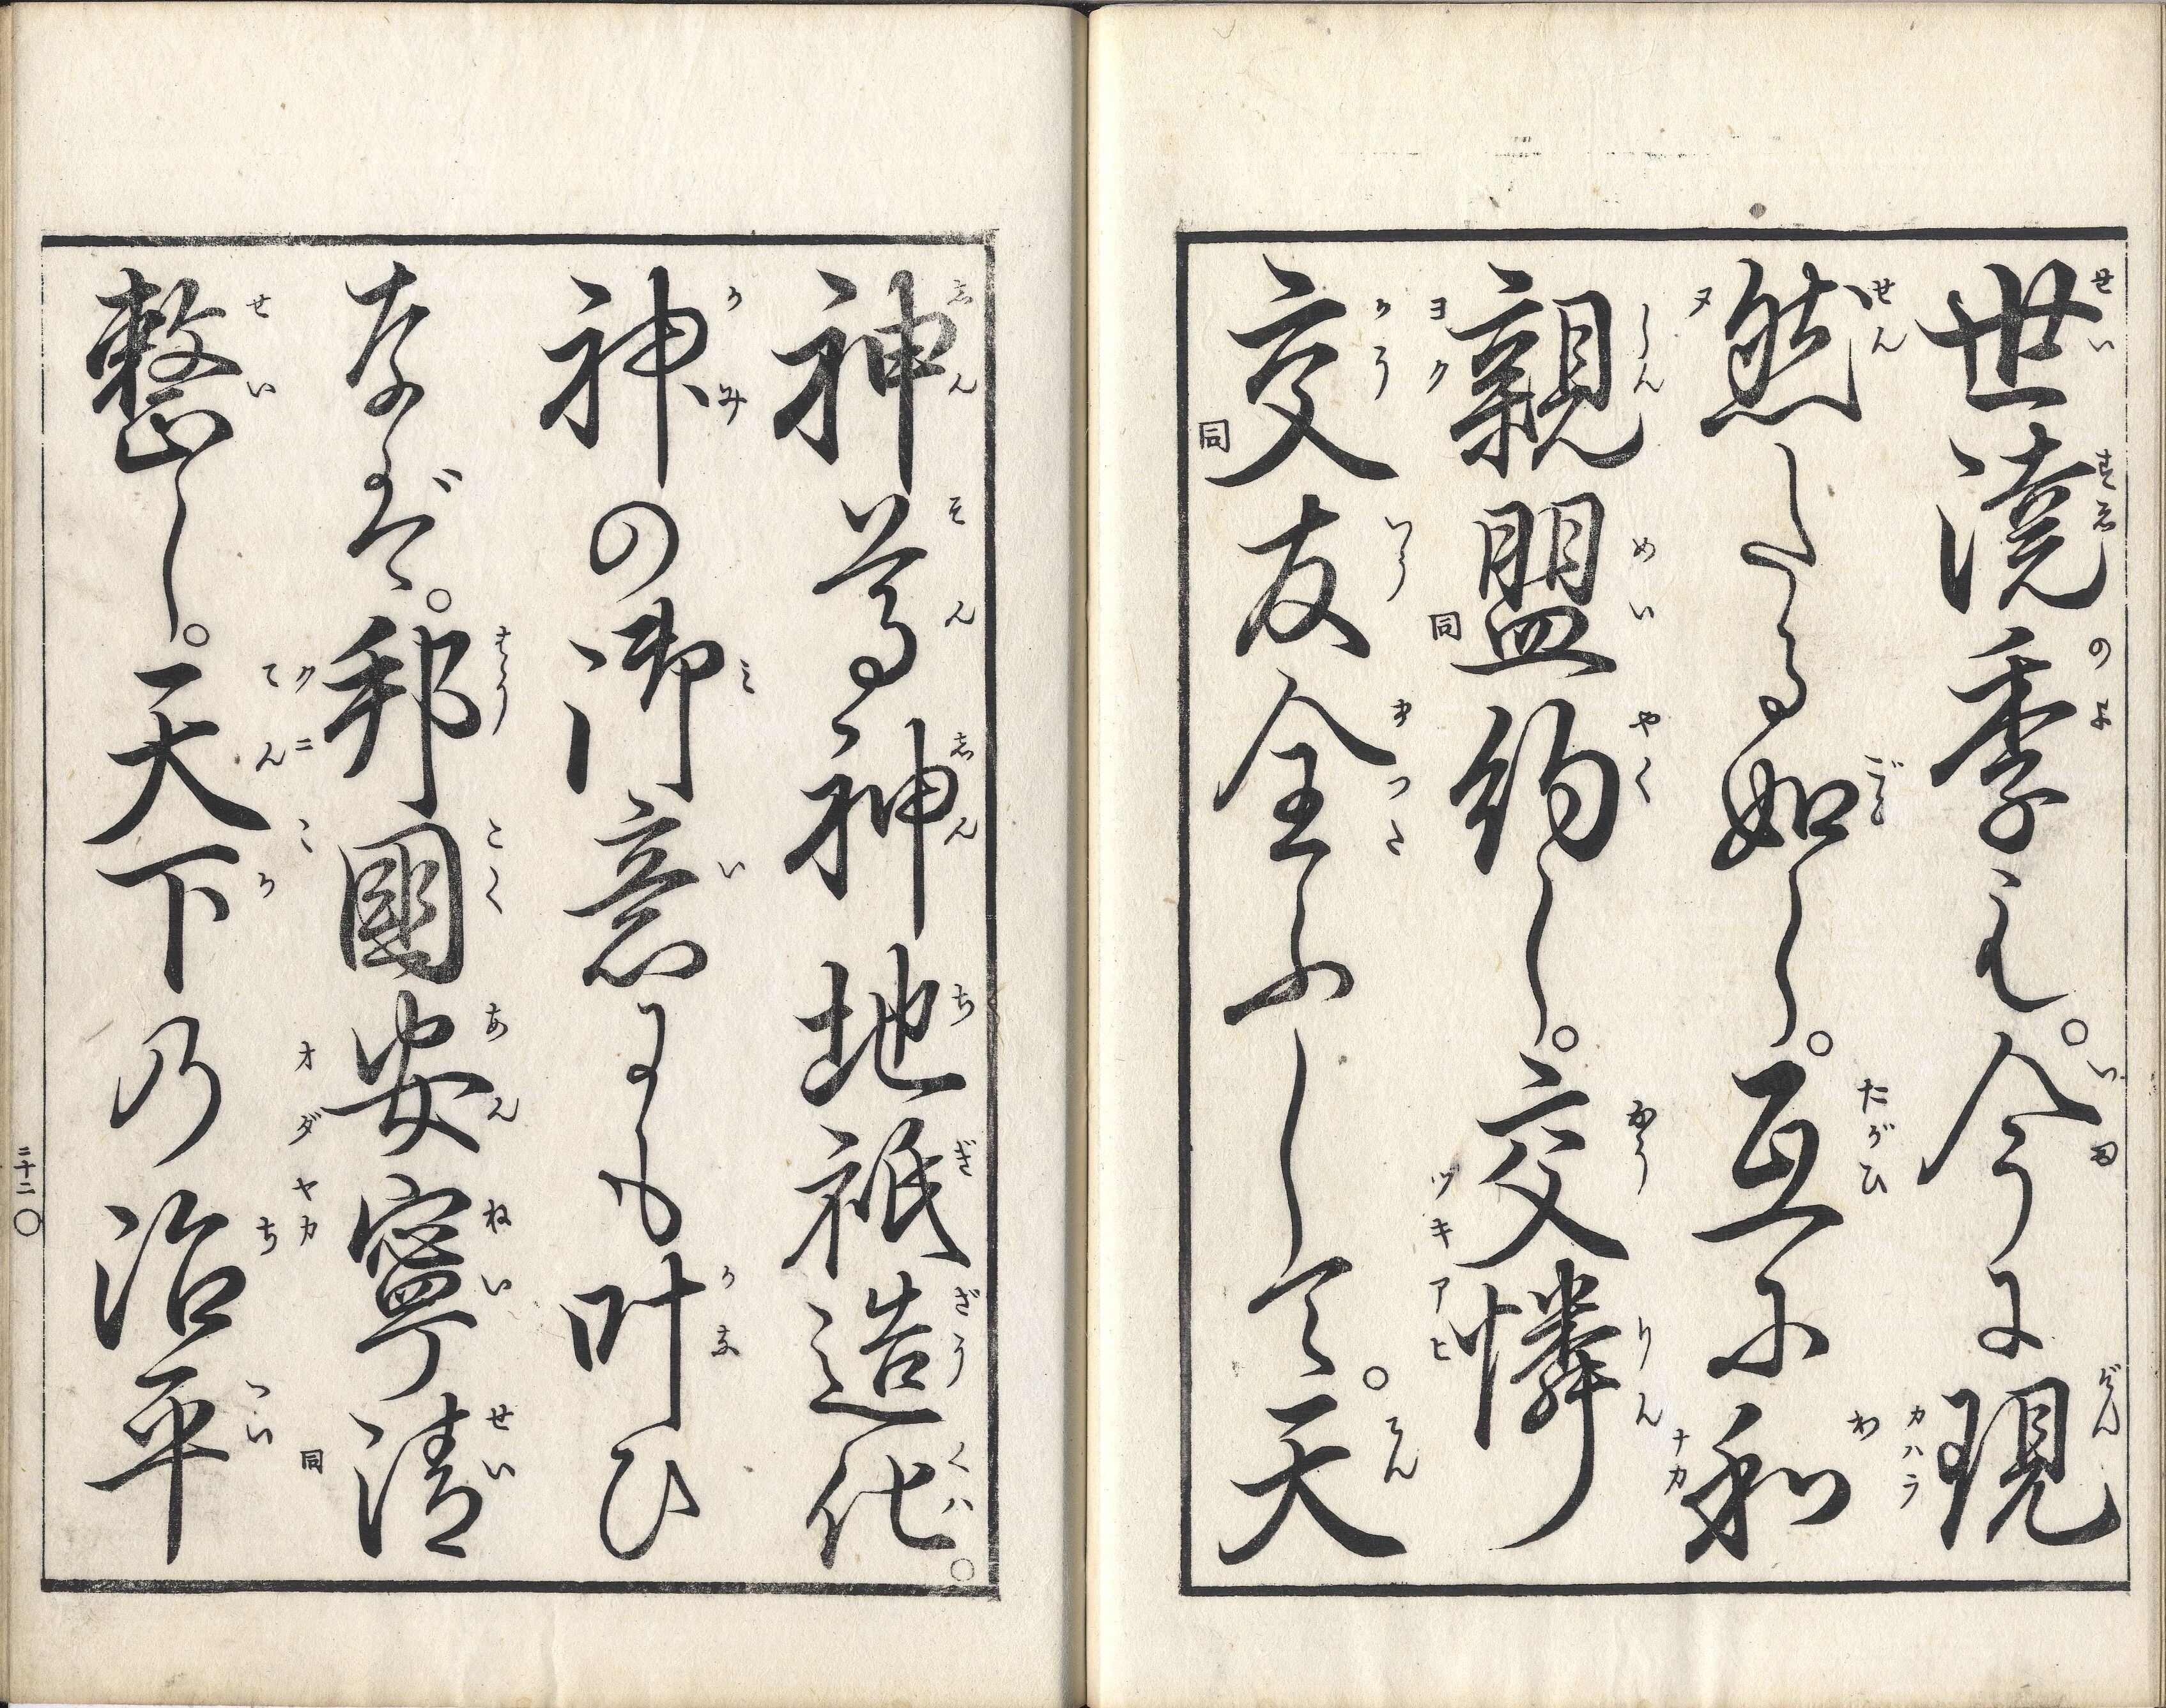 世澆季も。今に現
然したる如し。互に和
親盟約し。交憐
交友全ふして。天
神尊神地祇造化。
神の御意にも叶ひ
なば。邦國安寧清
整し。天下の治平
二十二〇